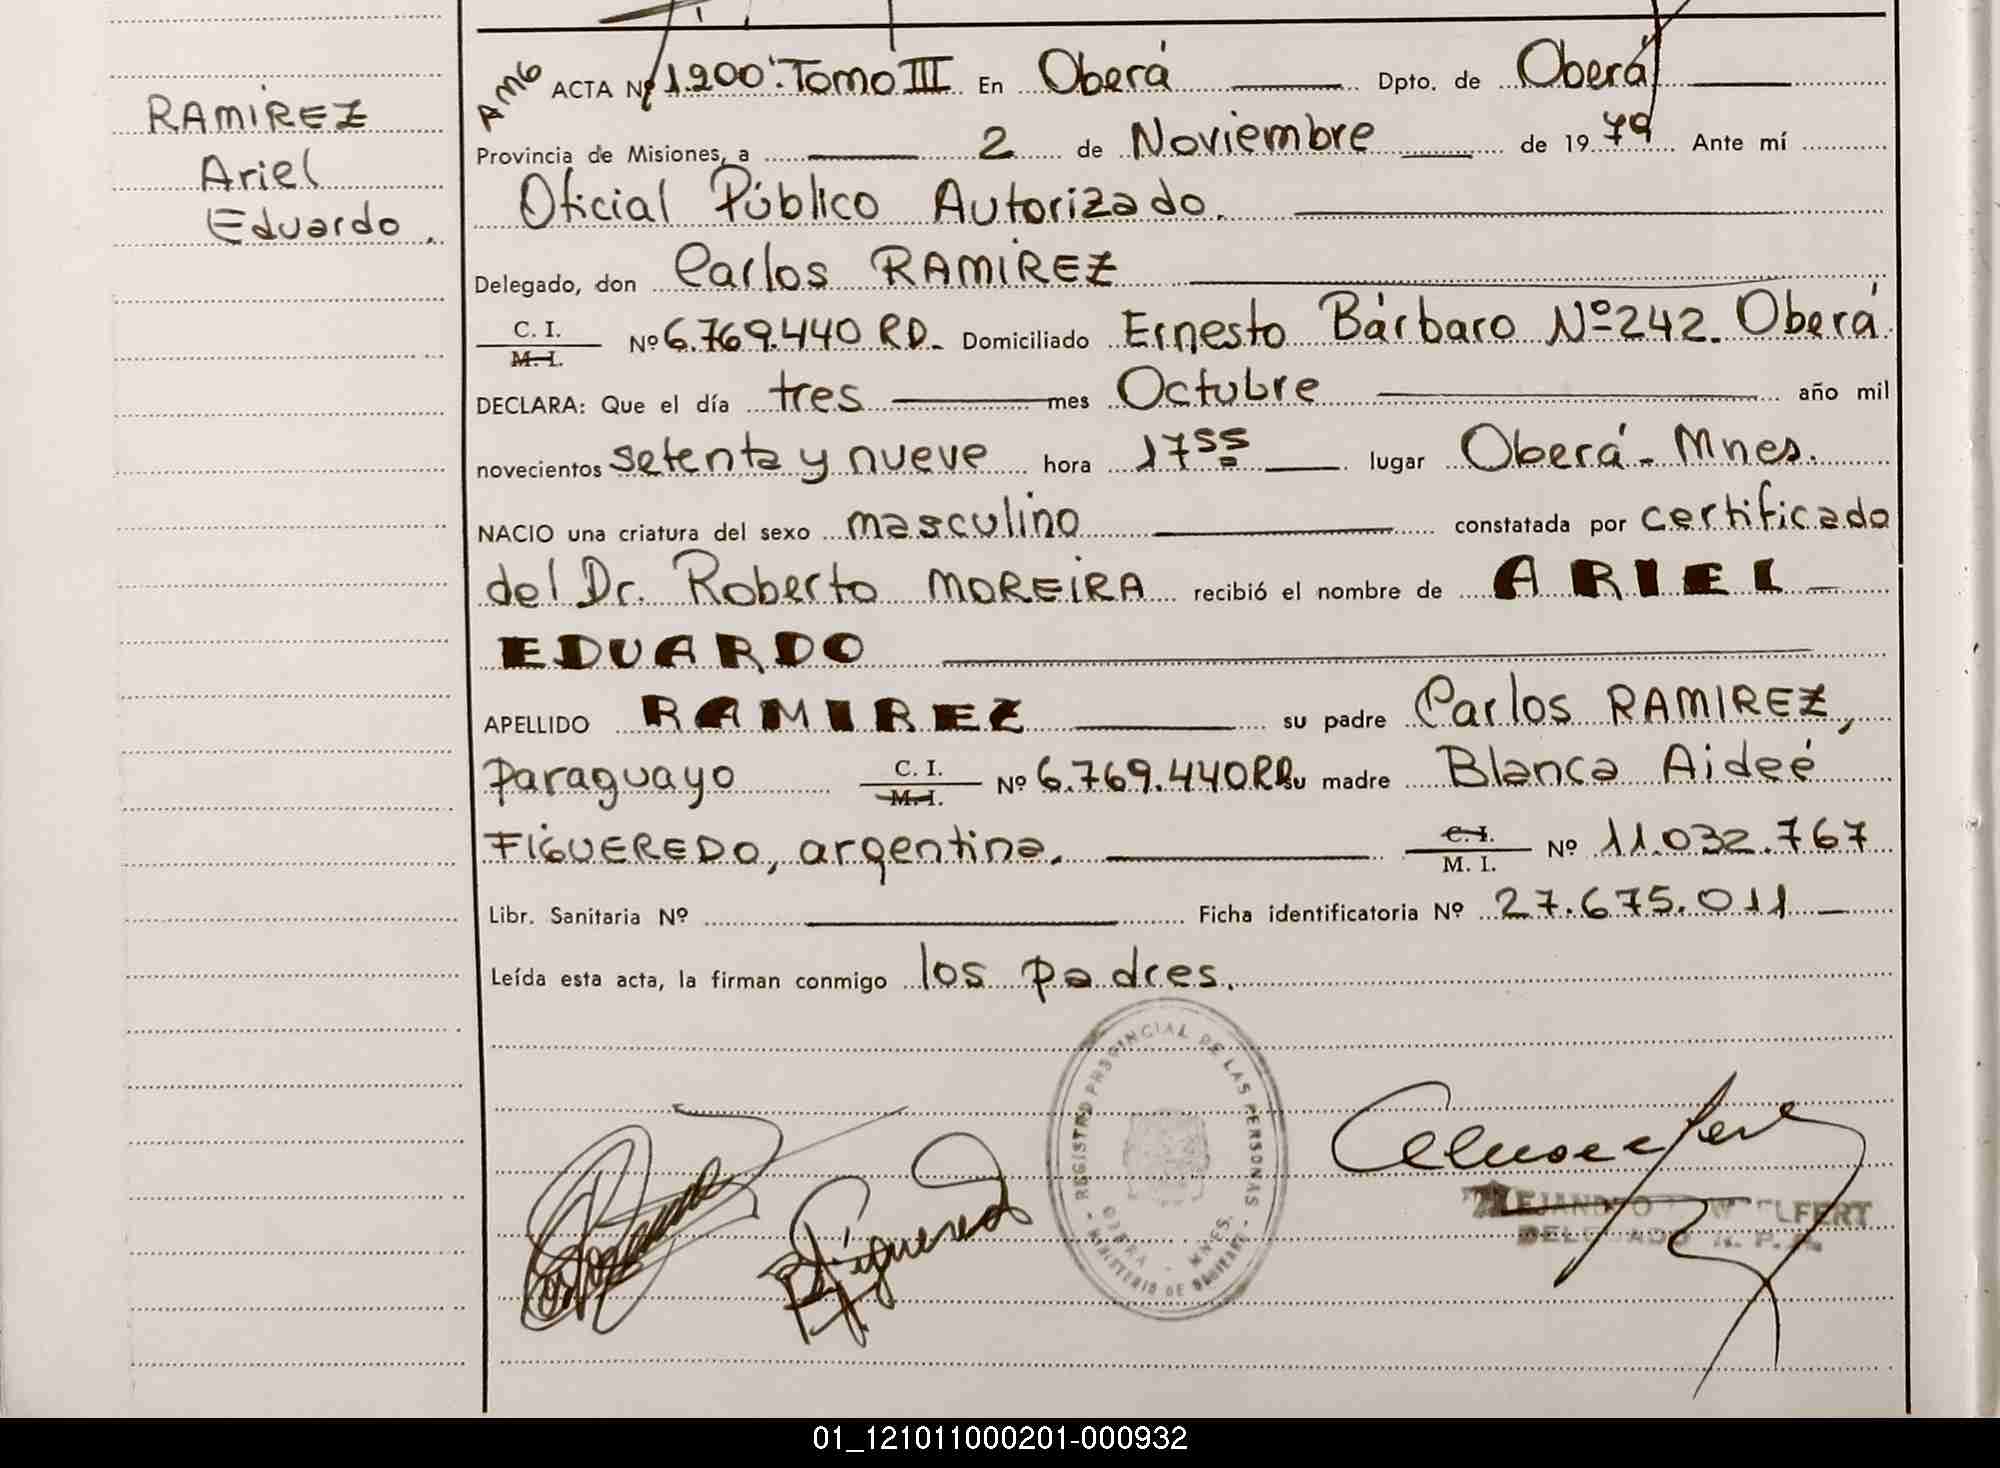 RAMIREZ
Ariel
Eduardo.
AMG ACTA Nº 1.200'. Tomo III En Oberá Dpto. de Oberá
Provincia de Misiones, a 2 de Noviembre de 1979 Ante mí
Oficial Público Autorizado.
Delegado, don Carlos RAMIREZ
C. I.
M. I. Nº 6.769.440 RD. Domiciliado Ernesto Bárbaro Nº 242. Oberá.
DECLARA: Que el día tres mes Octubre año mil
novecientos setenta y nueve hora 17 55 lugar Oberá - Mnes.
NACIO una criatura del sexo masculino constatada por certificado
del Dr. Roberto MOREIRA recibió el nombre de ARIEL
EDUARDO
APELLIDO RAMIREZ su padre Carlos RAMIREZ,
paraguayo C. I.
M. I. Nº 6.769.440 RD su madre Blanca Aideé
FIGUEREDO, argentina. C. I.
M. I. Nº 11.032.767
Libr. Sanitaria Nº Ficha identificatoria Nº 27.675.011
Leída esta acta, la firman conmigo los padres.
- REGISTRO PROVINCIAL DE LAS PERSONAS -
OBERA - MNES.
MINISTERIO DE GOBIERNO
Figueredo
DELEGADO R. P. P.
01_121011000201-000932